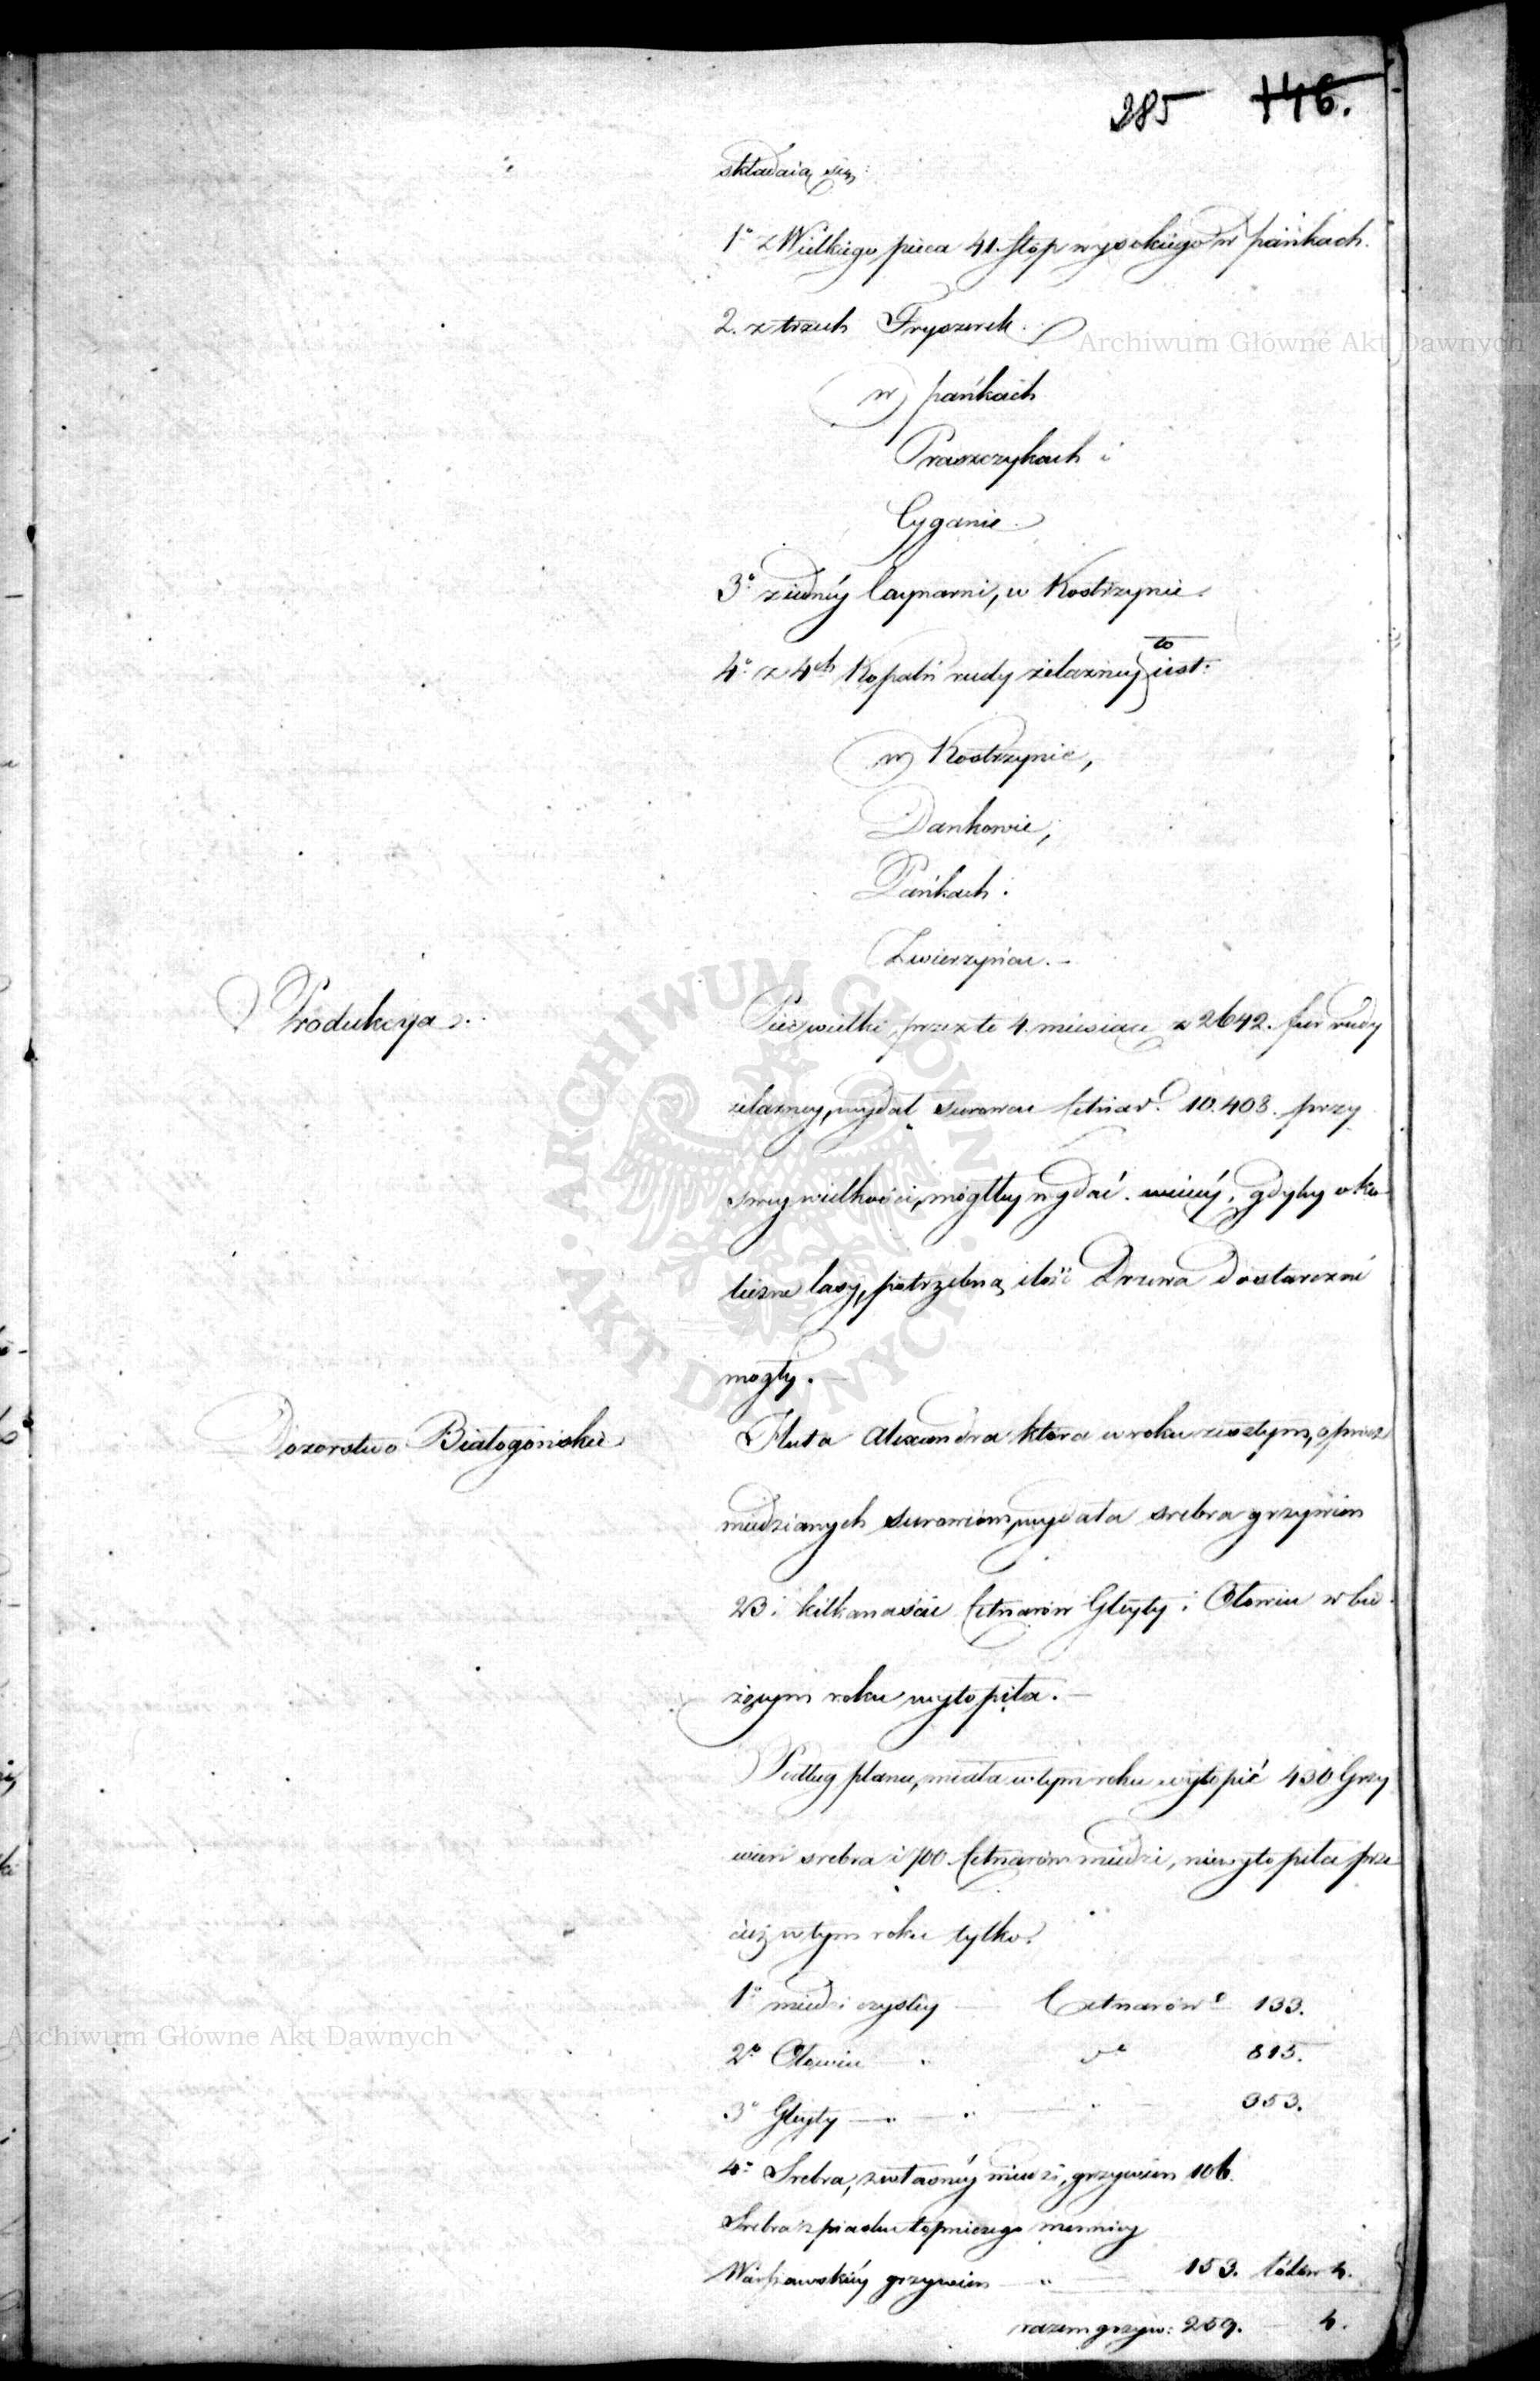 285 146.
składaią się:
1° z Wielkiego pieca 41. stop wysokiego w pańkach.
2. z trzech Fryszerek.
w pańkach
Praszczykach i
Cyganie.
3° z iedney Caynarni, w Kostrzynie.
4° z 4ch Kopalń rudy żelazney to iest:
w Kostrzynie,
Dankowie,
Pańkach.
Zwierzyńcu. -
Produkcya
Piec wielki, przez te 4. miesiące z 2642. fur rudy
żelazney, wydał surowcu Cetnar. 10.408. przy
swey wielkości, mógłby wydać więcéy, gdyby oko-
liczne lasy, potrzebną ilość Drzewa dostarczać
mogły. -
Dozorstwo Białogońskie
Huta Alexandra która w roku zeszłym, oprócz
miedzianych surowców, wydała srebra grzywien
23 i kilkanaście Cetnarów Gleyty i Ołowiu w bie-
żącym roku wytopiła. -
Podług planu, miała w tym roku wytopić 430 Grzy
wien srebra i 700 Cetnarów miedzi, niewytopiła prze-
cież w tym roku tylko.
1° miedzi czystey Cetnarów 133.
2° Ołowiu " de 815.
3° Gleyty " " " 353.
4° Srebra, z własnéy miedzi, grzywien 106.
Srebra z piasku topniczego mennicy
Warszawskiéy grzywien " 153. łótów 4.
razem grzyw: 259. 4.
Archiwum Główne Akt Dawnych
ARCHIWUM GŁÓWNE · AKT DAWNYCH ·
Archiwum Główne Akt Dawnych